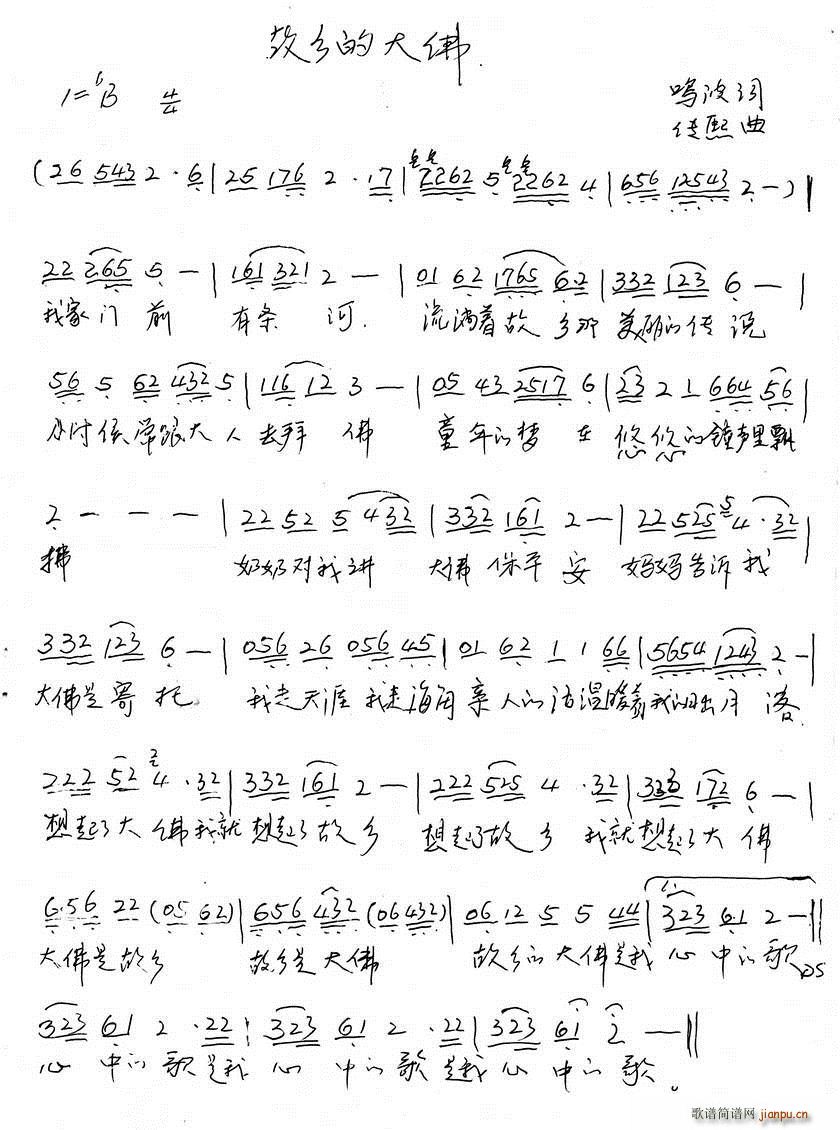 故乡的大佛
1=♭B 4/4
鸣波词
佳熙曲
(26 543 2·6|25 176 2·17|2262 5 2262 4|656 12543 2—)‖
22 265 5—|161 321 2—|01 62 1765 62|332 123 6—|
我家门前 有条河 流淌着故乡那美丽的传说
56 5 62 432 5|116 12 3—|05 43 2517 6|23 2 1 664 56|
小时候常跟大人去拜佛 童年的梦在悠悠的钟声里飘
2———|22 52 5 432|332 161 2—|22 525 5 4·32|
拂 奶奶对我讲 大佛保平安 妈妈告诉我
332 123 6—|056 26 056 45|01 62 1 1 66|5654 1243 2—|
大佛是寄托 我走天涯我走海角亲人的话温暖着我日出月落
222 52 2 4·32|332 161 2—|222 525 4·32|323 172 6—|
想起了大佛我就想起了故乡 想起了故乡我就想起了大佛
6·56 22 (05 62)|656 432 (06432)|06 12 5 5 44|1. 323 6·1 2—‖
大佛是故乡 故乡是大佛 故乡的大佛是我心中的歌 DS
323 61 2·22|323 61 2·22|323 61 2—‖
心中的歌是我心中的歌是我心中的歌。
歌谱简谱网 jianpu.cn